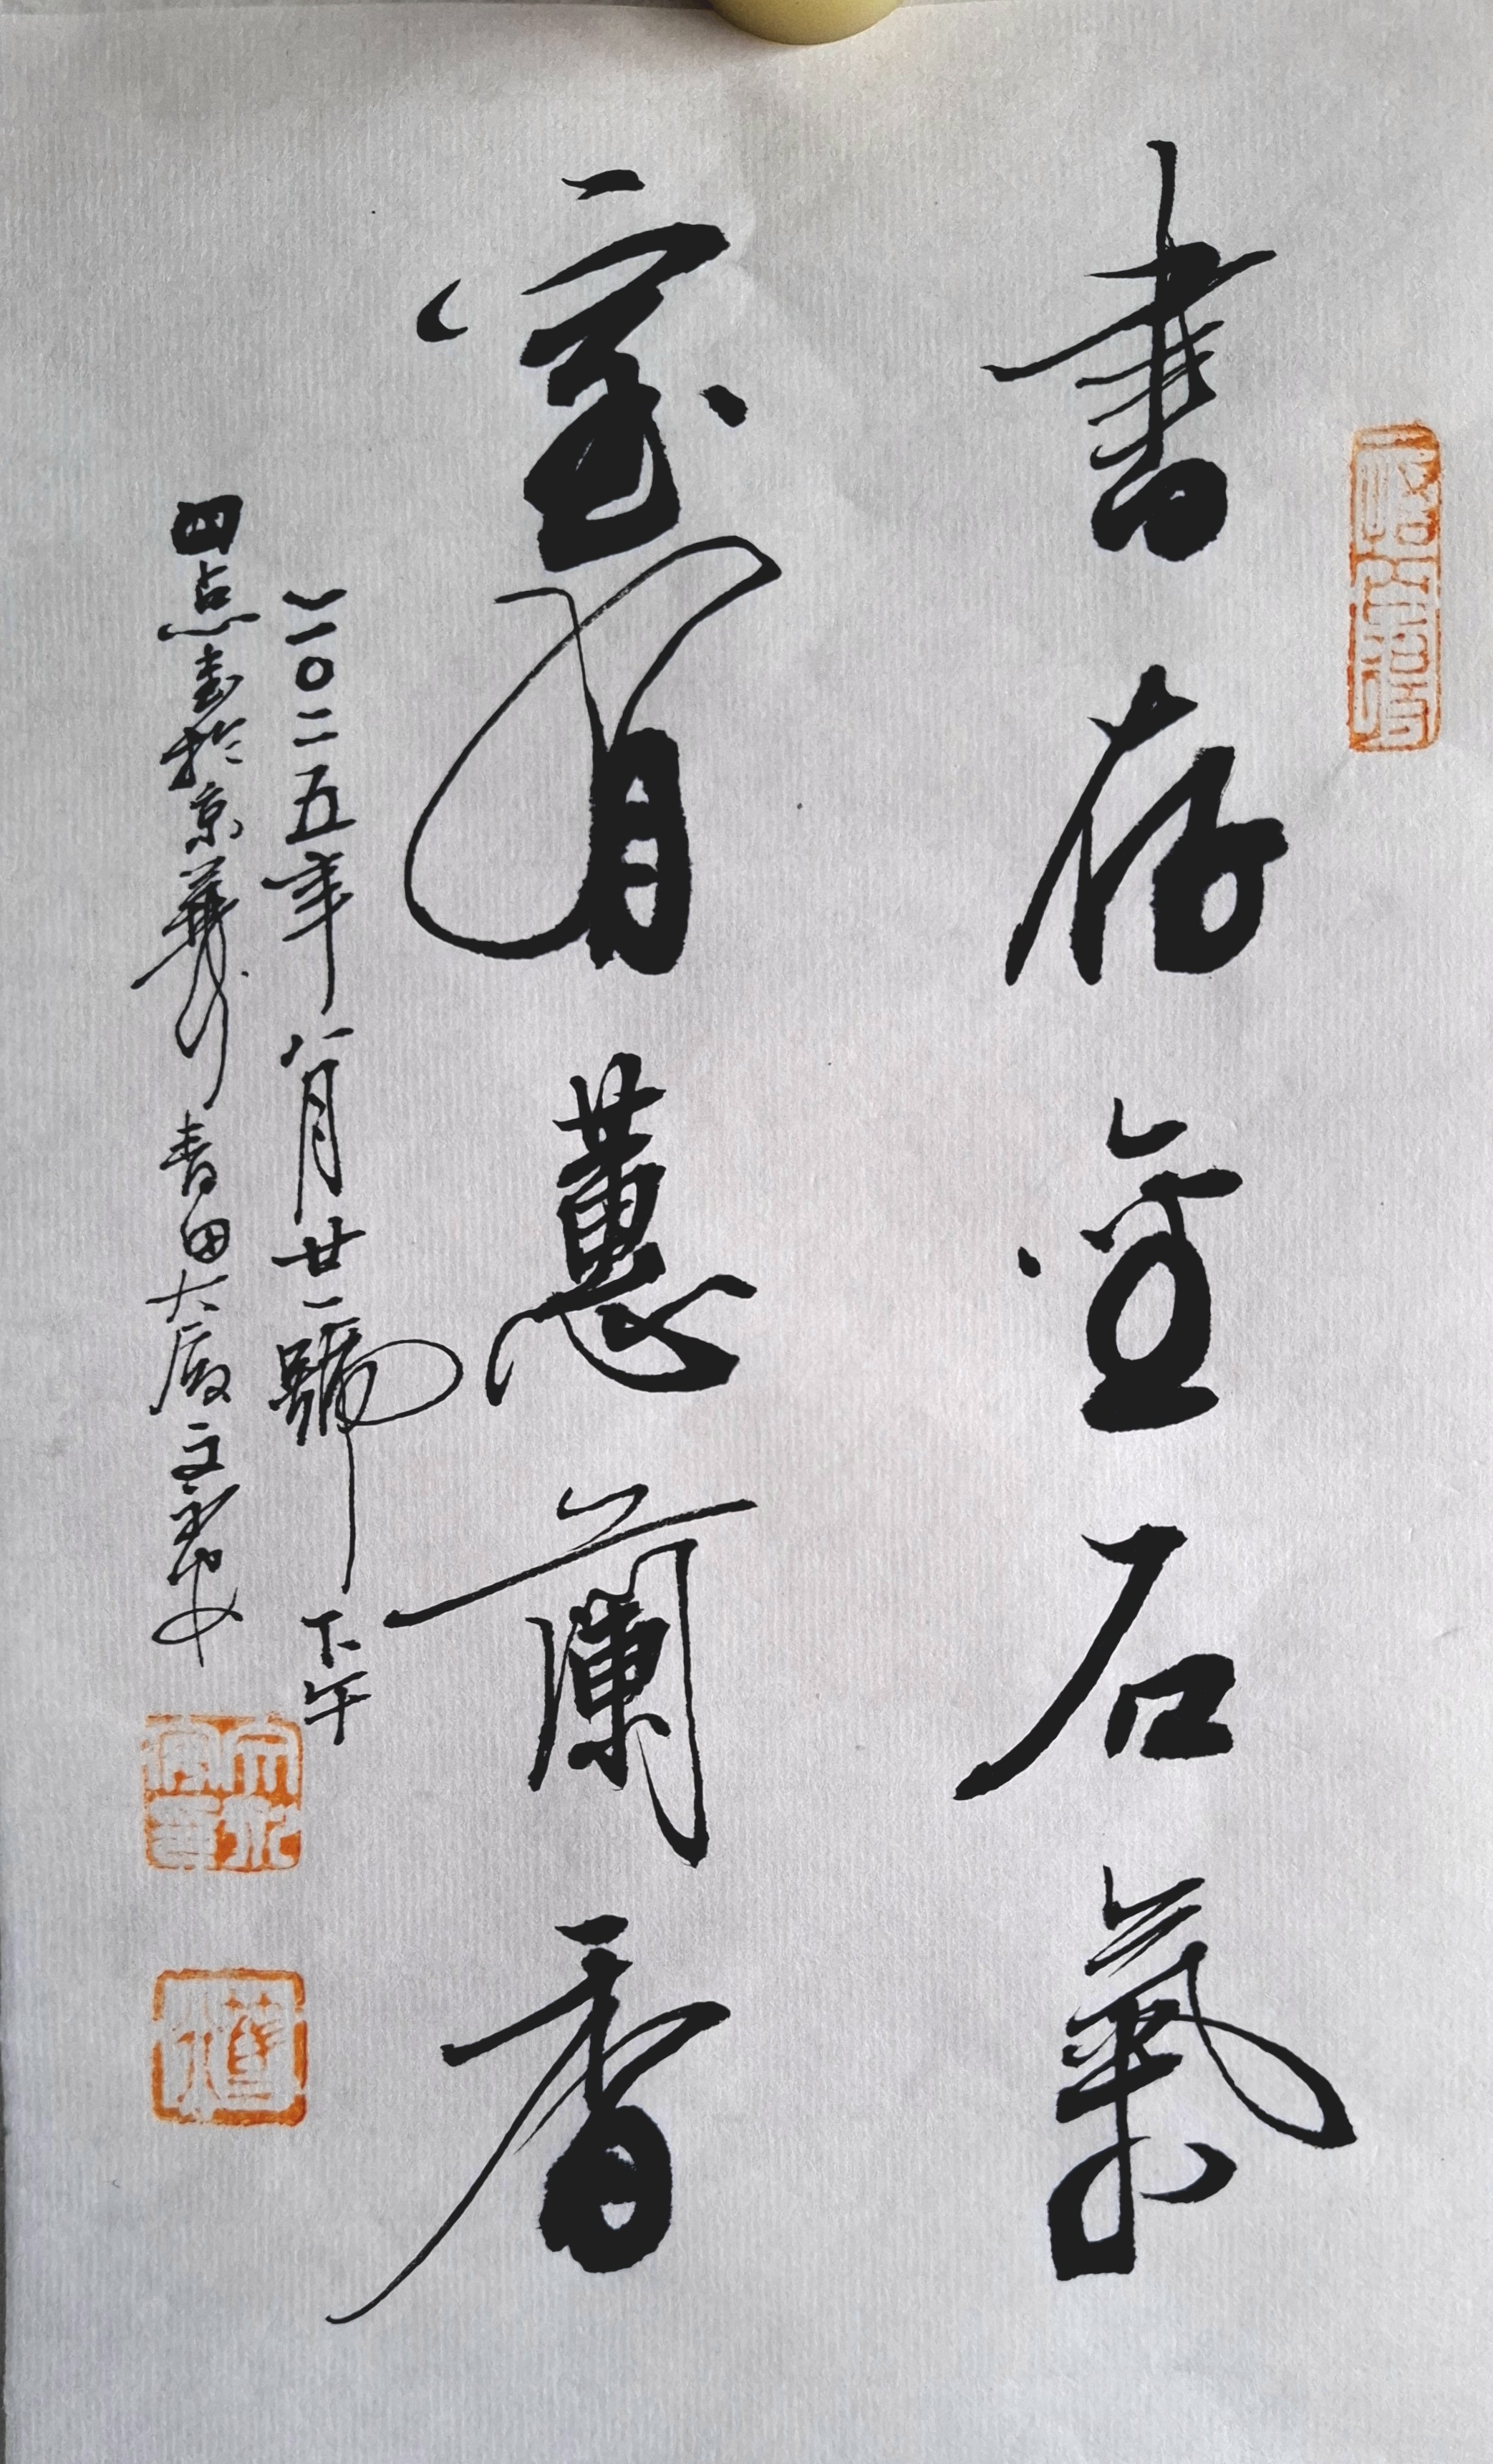 書存金石氣
室有蕙蘭香
二〇二五年八月廿一號下午
四点書於京華青田大廈文